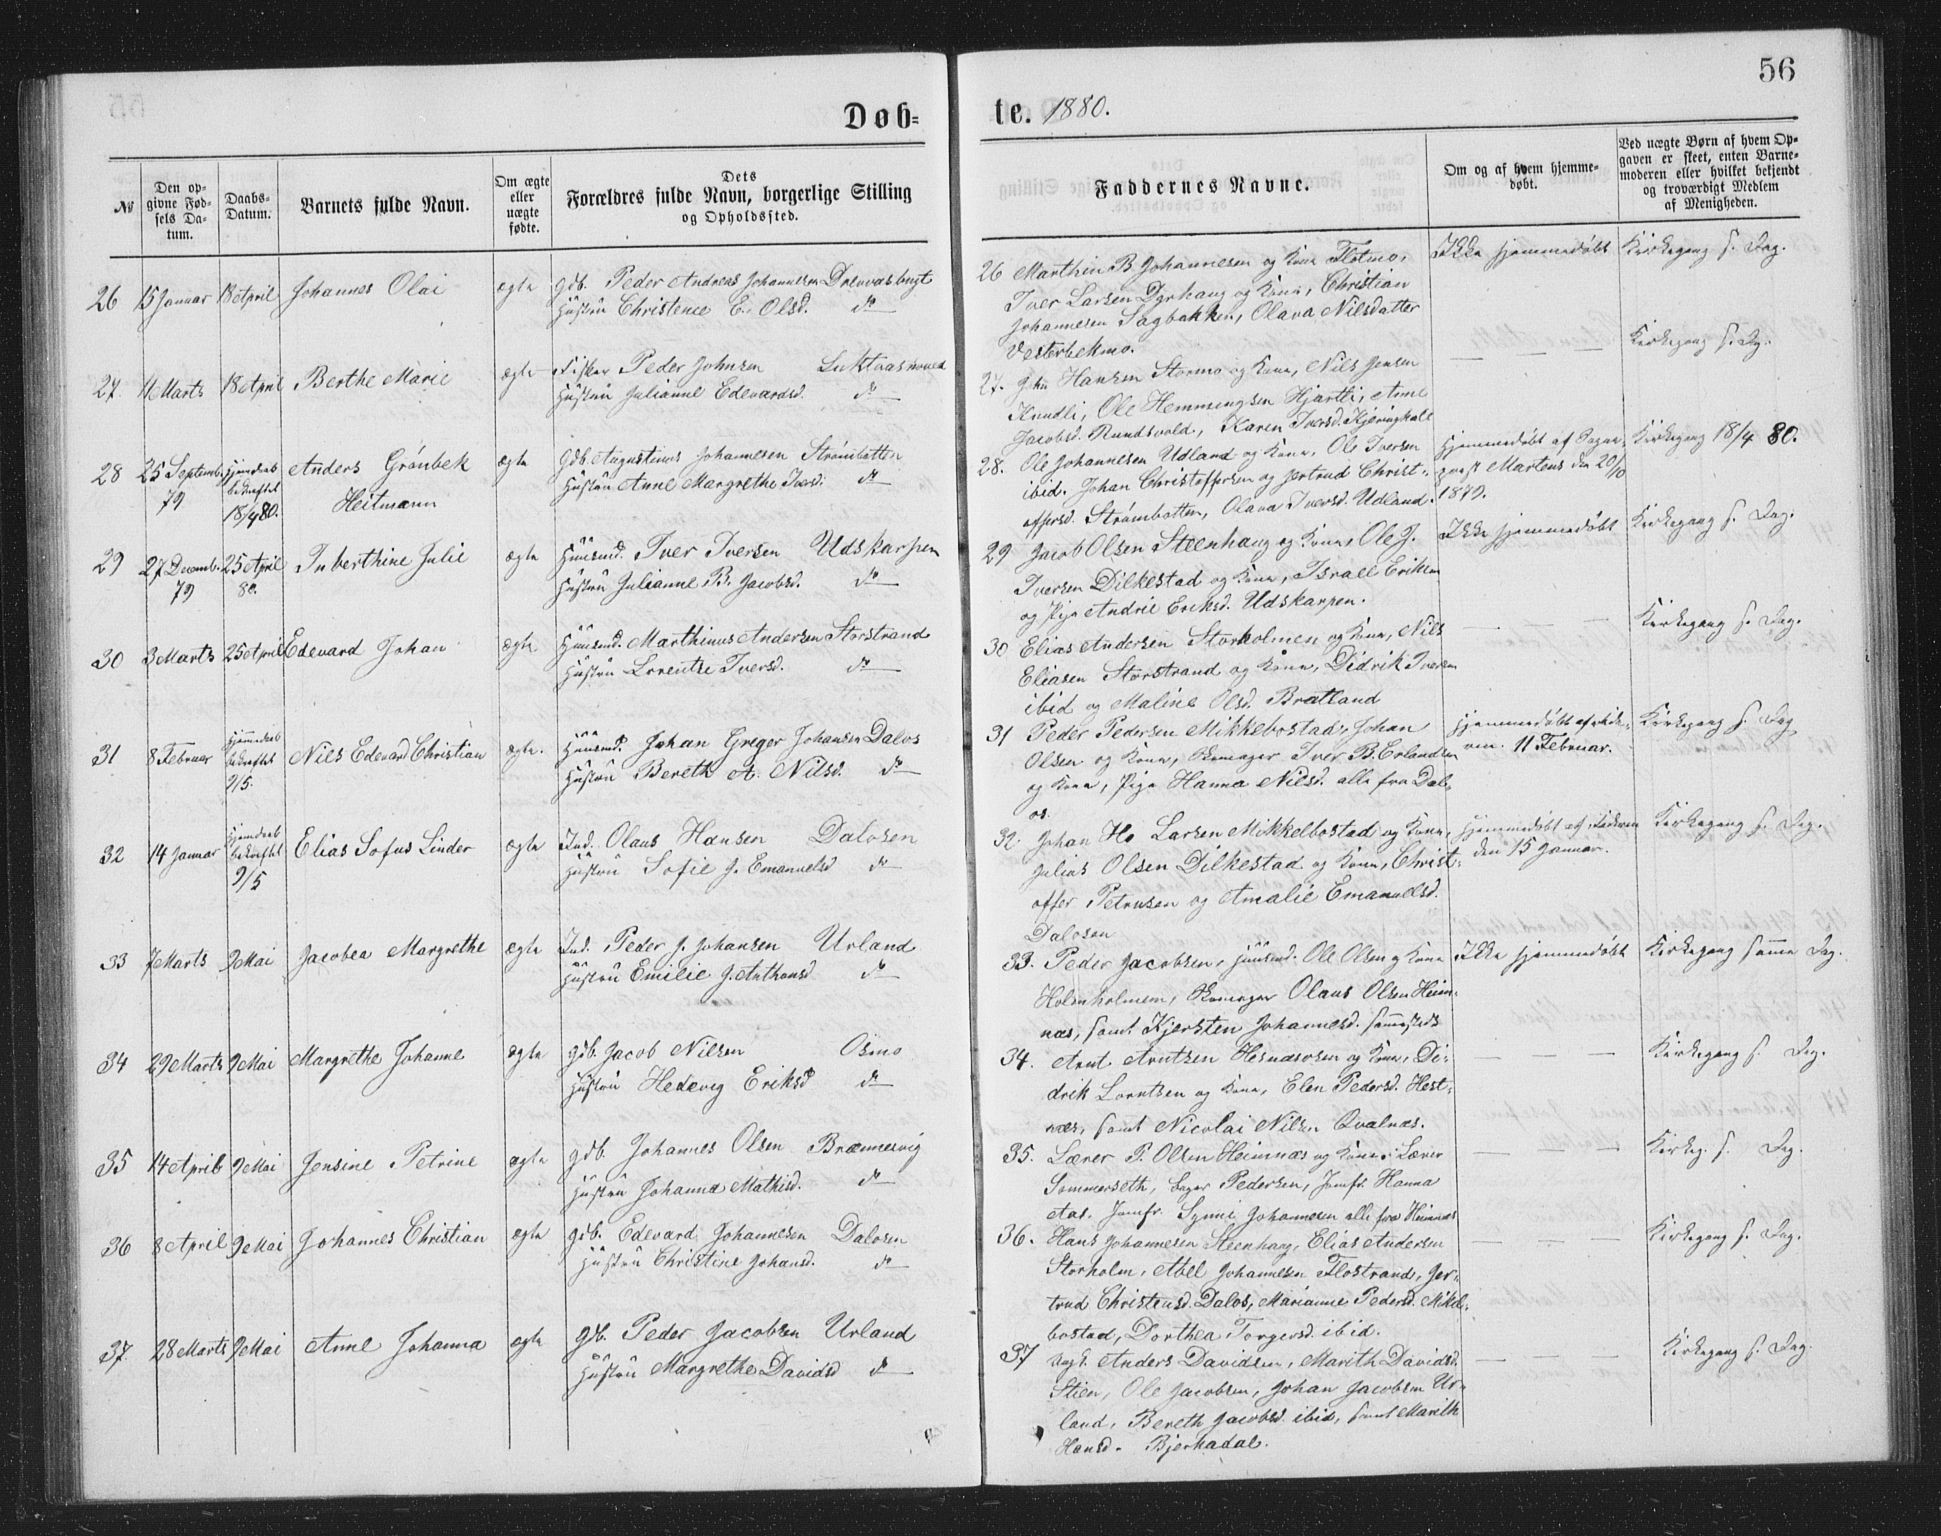 56
Døb-
te. 1880.
№
Den op-
givne Fød-
sels Da-
tum.
Daabs-
Datum.
Barnets fulde Navn.
Om ægte
eller
uægte
fødte.
Dets
Forældres fulde Navn, borgerlige Stilling
og Opholdssted.
Faddernes Navne.
Om og af hvem hjemme-
døbt.
Ved uægte Børn af hvem Op-
gaven er skeet, enten Barne-
moderen eller hvilket bekjendt
og troværdigt Medlem
af Menigheden.
26 15 Januar 18 April Johannes Olai ægte Gdb. Peder Andreas Johannesen
Hustru Christence E. Olsd. do
27. 11 Marts 18 April Berthe Marie ægte Fisker Peder Johnsen
Hustru Julianne Edevardsd. do
28 25 Septemb. Hjemdaab Anders Grønbek ægte Gdb. Augustinus Johannesen Strømbotten
79 bekræftet Heitmann Hustru Anne Margrethe Iversd. do
18/4 80.
29 27 Decemb. 25 April Inberthine Julie ægte Huusmd. Iver Iversen Udskarpen
79 80. Hustru Julianne B. Jacobsd. do
30 3 Marts 25 April Edevard Johan ægte Huusmd. Marthinus Andersen Storstrand
Hustru Lorentze Iversd. do
31 8 Februar Hjemdaab Nils Edevard Christian ægte. Huusmd. Johan Greger Johansen Dalos
bekræftet Hustru Bereth A. Nilsd. do
9/5.
32 14 Januar Hjemdaab Elias Sofus Linder ægte Ind. Olaus Hansen Dalosen
bekræftet Hustru Sofie J. Emanuelsd do
9/5
33 7 Marts 9 Mai Jacobea Margrethe ægte Ind. Peder J. Johansen Urland
Hustru Emilie J. Anthonsd do
34 29 Marts 9 Mai Margrethe Johanne ægte Gdb. Jacob Nilsen Osmo
Hustru Hedevig Eriksd do
35 14 April 9 Mai Jensine Petrine ægte Gdb. Johannes Olsen Brænnesvig
Hustru Johanna Mathisd. do
36 8 April 9 Mai Johannes Christian ægte Gdb. Edevard Johannesen Dalosen
Hustru Christine Johansd. do
37. 28 Marts 9 Mai Anne Johanna ægte Gdb. Peder Jacobsen Urland
Hustru Margrethe Davidsd do
26 Marthin B. Johannesen og Kone Flotmo, Ikke hjemmedøbt Kirkegang s. Dag.
Iver Larsen Dyrhaug og Kone, Christian
Johannesen Sagbakken, Olava Nilsdatter
Vesterbekmo. Kirkegang s. Dg.
27. Joh. Hansen Stormo og Kone, Nils Jensen
Ole Hemmingsen Hjartli, Anne
Jacobsd. Rundsvold, Karen Iversd.
28. Ole Johannesen Udland og Kone, Ole Iversen Hjemmedøbt af Sogne- Kirkegang 18/4 80.
ibid. Johan Christoffersen og Jertrud Christ- præst Martens den 20/10
offersd. Strømbotten, Olava Iversd. Udland. 1879.
29 Jacob Olsen Steenhaug og Kone, Ole J. Ikke hjemmedøbt Kirkegang s. Dag.
Iversen Dilkestad og Kone, Israel Eriksen
og Pige Andrie Eriksd. Udskarpen.
30 Elias Andersen Storholmen og Kone, Nils Kirkegang s. Dag.
Eliasen Storstrand og Kone, Didrik Iversen
ibid og Maline Olsd. Bratland
31 Peder Pedersen Mikkebostad, Johan Hjemmedøbt af Fade- Kirkegang s. Dag
Olsen og Kone, Iver B. Erlandsen ren. 11 Februar.
og Kone, Pige Hanna Nilsd. alle fra Dal-
os.
32. Johan Ho Larsen Mikkelbostad og Kone, Hjemmedøbt af Faderen Kirkegang s. Dag.
Julius Olsen Dilkestad og Kone, Christ- den 15 Januar.
offer Petrusen og Amalie Emanuelsd.
Dalosen
33. Peder Jacobsen, Huusmd. Ole Olsen og Kone Ikke hjemmedøbt Kirkegang samme Dag.
Holmholmem, Olaus Olsen Heim-
næs, samt Kjersten Johannesd. sammesteds
34. Arnt Arntzen Hesnæsosen og Kone, Di- Kirkegang s. Dag.
drik Lorntsen og Kone, Elen Pedersd. Hest-
næs, samt Nicolai Nilsen Qvalnæs.
35. Lærer P. Olsen Heimnæs og Kone, Lærer Kirkeg. s. Dag.
Sommerseth, Pedersen, Jomfr. Hanna
Aas. Jomfr. Synni Johannesen alle fra Heimnæs
36. Hans Johannesen Steenhaug, Elias Andersen Kirkegang s. Dag.
Storholm, Abel Johannesen Flostrand, Jer-
trud Christensd. Dalos, Marianne Pedersd. Mikel-
bostad, Dorthea Torgersd. ibid.
37 Anders Davidsen, Marith Davidsd. Kirkegang s. Dag.
Stien, Ole Jacobsen, Johan Jacobsen Ur-
land, Bereth Jacobsd. ibid, samt Marith
Hansd. Bjerkadal.